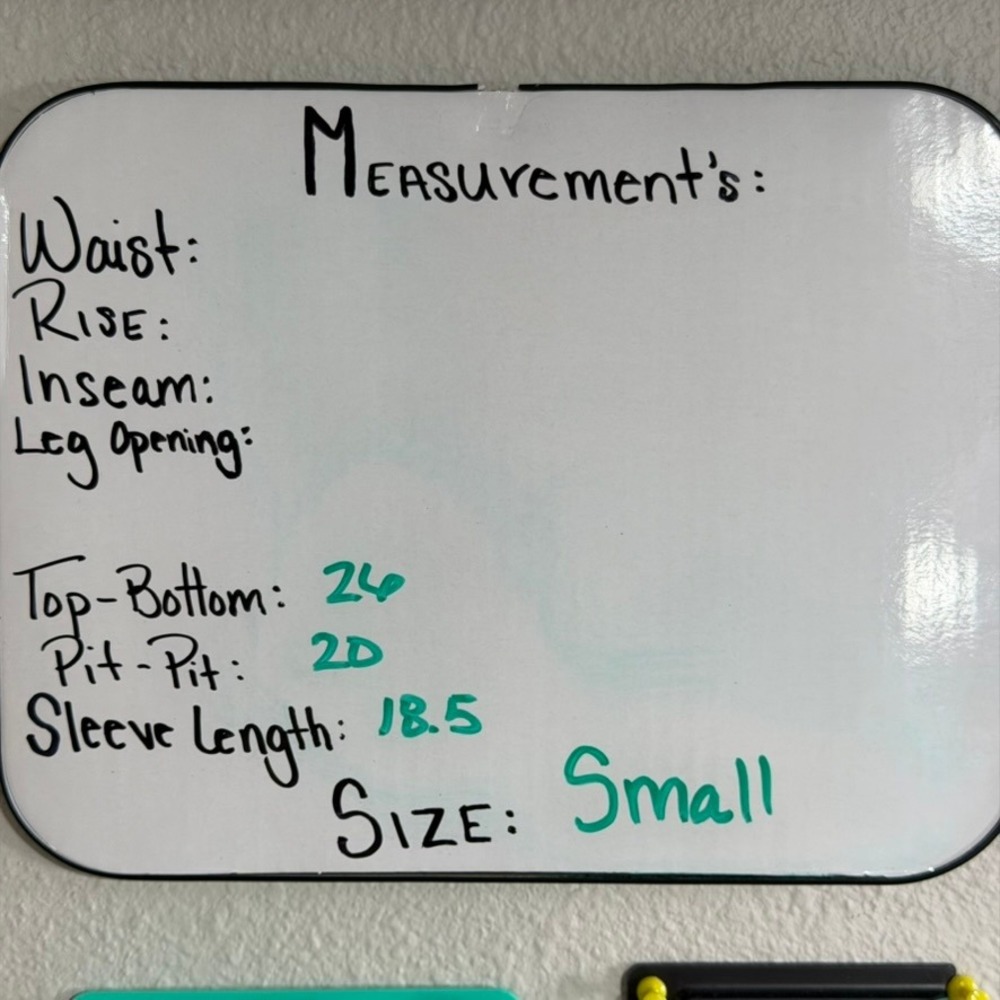 Measurement's:
Waist:
Rise:
Inseam:
Leg Opening:
Top-Bottom: 26
Pit-Pit: 20
Sleeve Length: 18.5
Size: Small